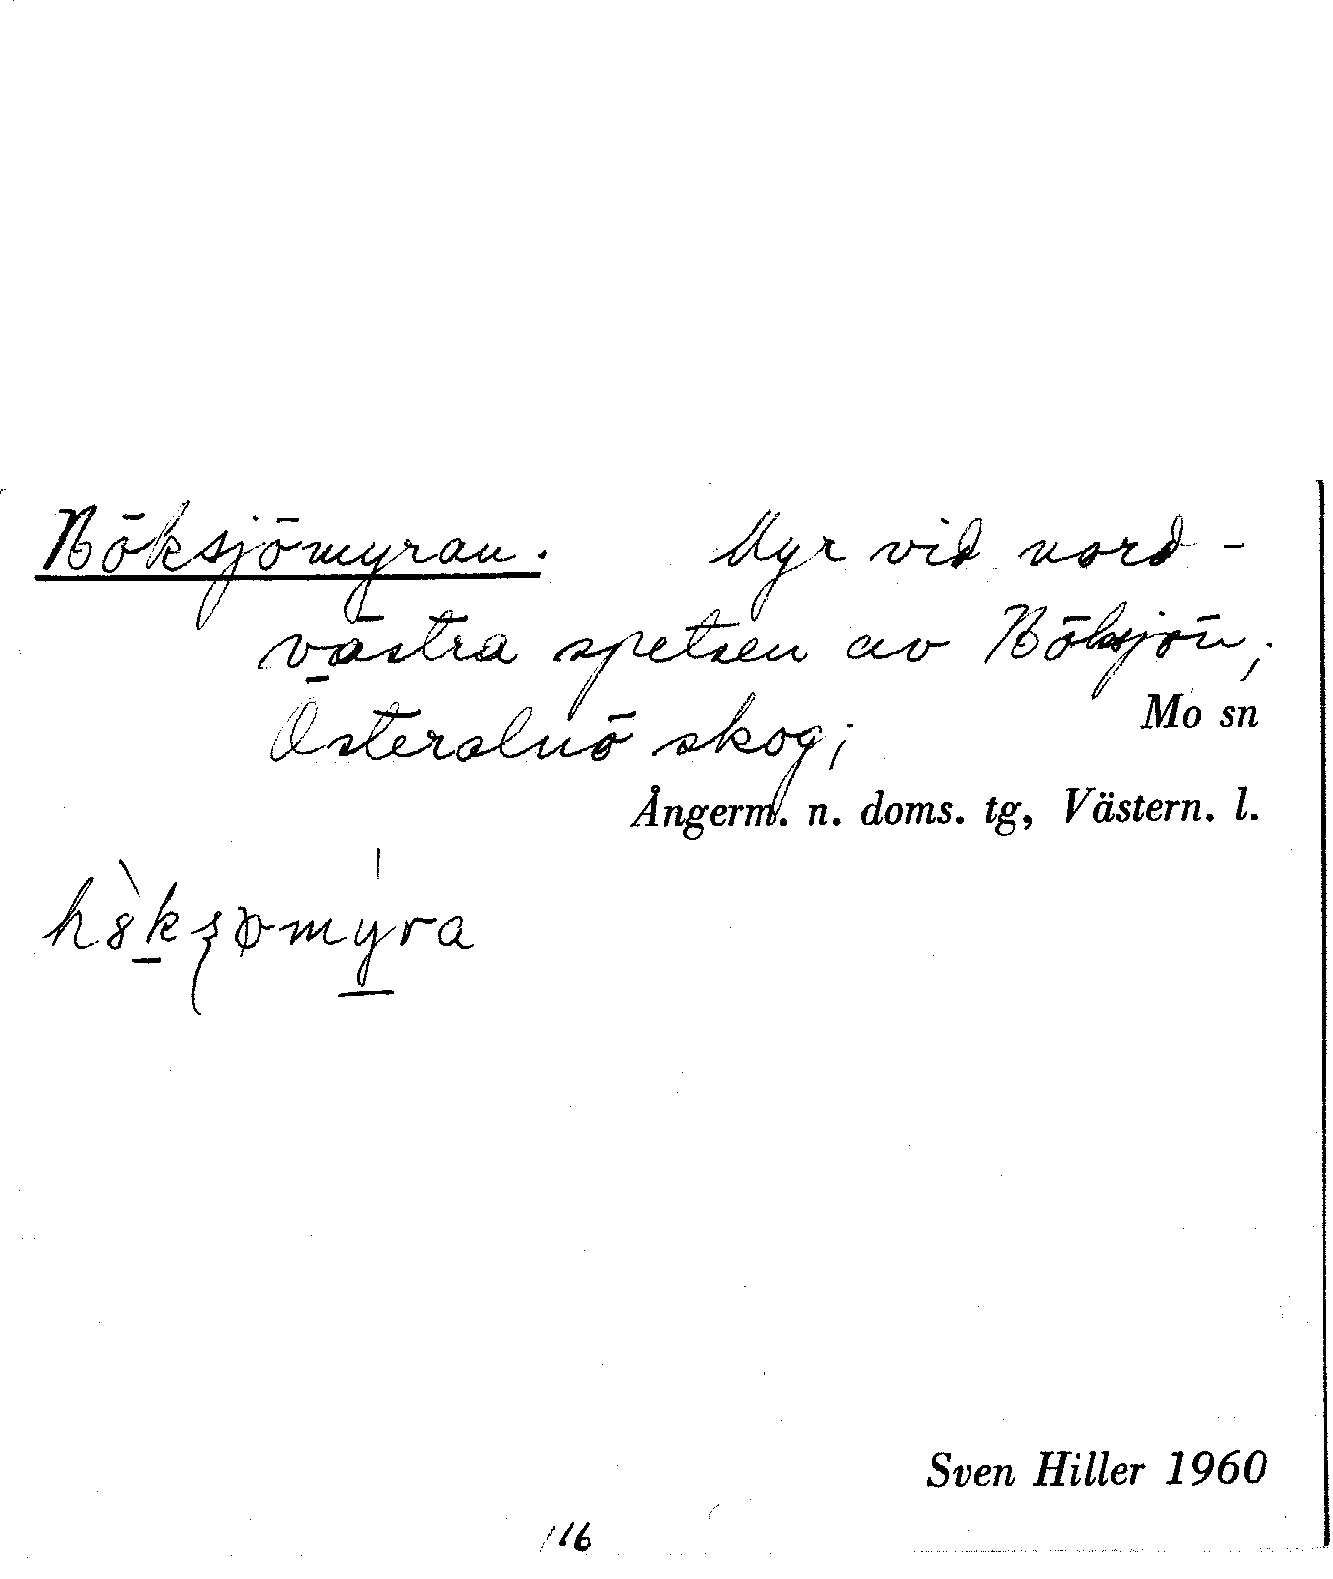 Höksjömyran. Myr vid nord-
västra spetsen av Höksjön;
Mo sn
Österalnö skog;
Ångerm. n. doms. tg, Västern. l.
Sven Hiller 1960
116